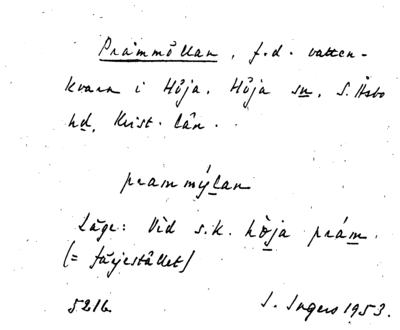 Pråmmöllan, f.d. vatten-
kvarn i Höja, Höja sn, S. Åsbo
hd, Krist. län.
prammýlan
Läge: Vid s.k. höja prám.
(= färjestället)
5216 I. Ingers 1953.